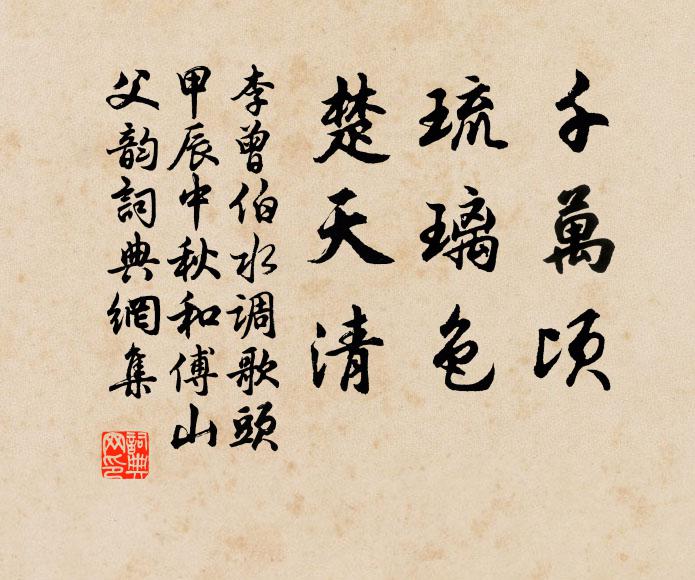 千萬頃
琉璃色
楚天清
李曾伯水调歌頭
甲辰中秋和傅山
父韵詞典網集
詞典网印